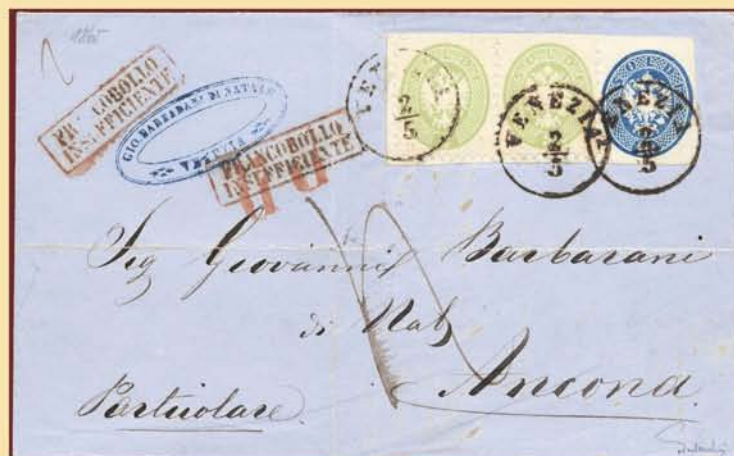 1865
FRANCOBOLLO
INSUFFICIENTE
GIO. BARBARANI DI NATALE
VENEZIA
FRANCOBOLLO
INSUFFICIENTE
VENEZIA
2
5
SOLDI
SOLDI
VENEZIA
2
5
SOLDI
VENEZIA
2
5
Sig Giovanni Barbarani
di Nat
Ancona
Particolare